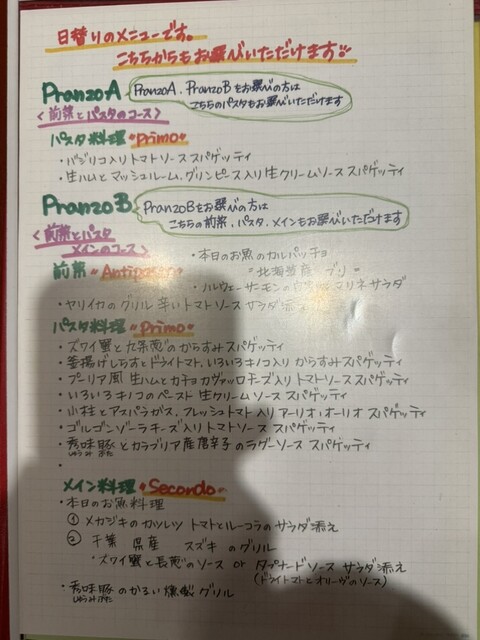 日替りのメニューです。
こちらからもお選びいただけます
PranzoA
PranzoA、PranzoBをお選びの方は
こちらのパスタもお選びいただけます
<前菜とパスタのコース>
パスタ料理 "Primo"
・バジリコ入りトマトソース スパゲッティ
・生ハムとマッシュルーム、グリンピース入り生クリームソース スパゲッティ
PranzoB
PranzoBをお選びの方は
こちらの前菜、パスタ、メインもお選びいただけます
<前菜とパスタ
メインのコース>
・本日のお魚のカルパッチョ
"北海道産 ブリ"
前菜 "Antipasto"
・ノルウェーサーモンの マリネサラダ
・ヤリイカのグリル 辛いトマトソース サラダ添え
パスタ料理 "Primo"
・ズワイ蟹と九条葱のからすみスパゲッティ
・釜揚げしらすとドライトマト、いろいろキノコ入り からすみスパゲッティ
・プーリア風 生ハムとカチョカヴァッロチーズ入りトマトソーススパゲッティ
・いろいろキノコのペースト 生クリームソース スパゲッティ
・小柱とアスパラガス、フレッシュトマト入りアーリオ・オーリオ スパゲッティ
・ゴルゴンゾーラチーズ入りトマトソース スパゲッティ
・秀味豚とカラブリア産唐辛子のラグーソース スパゲッティ
しゅうみ ぶた
・
メイン料理 "Secondo"
・本日のお魚料理
① メカジキのカツレツ トマトとルーコラのサラダ添え
② 千葉 県産 スズキ のグリル
"ズワイ蟹と長葱"のソース or タプナードソース サラダ添え
(ドライトマトとオリーヴのソース)
・秀味豚のかるい燻製グリル
しゅうみぶた